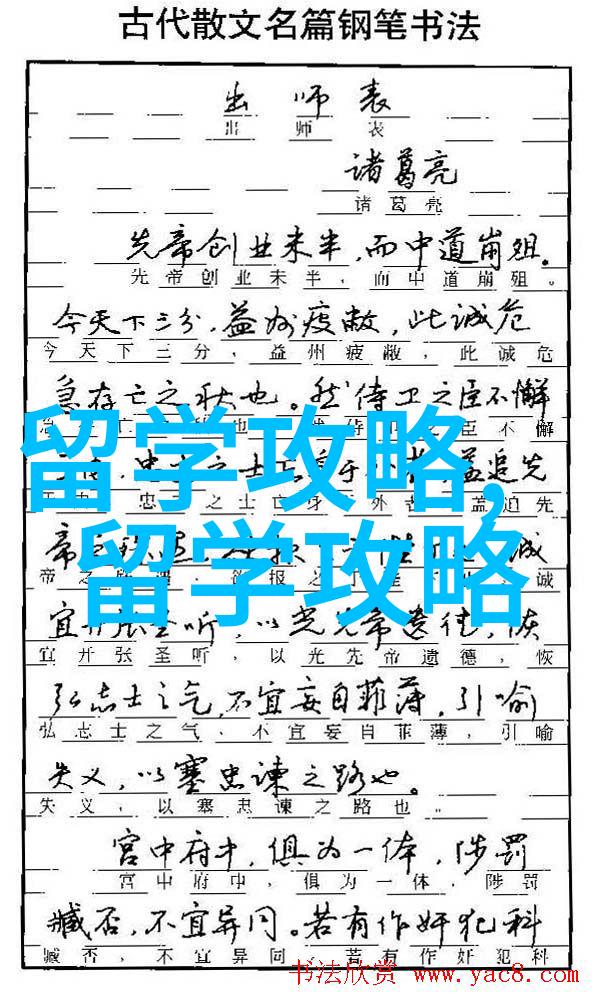 古代散文名篇钢笔书法
出师表
出师表
诸葛亮
诸葛亮
先帝创业未半,而中道崩殂。
先帝创业未半,而中道崩殂。
今天下三分,益州疲敝,此诚危
今天下三分,益州疲敝,此诚危
急存亡之秋也。然侍卫之臣不懈
臣不懈
留学攻略,
盖追先
忠 之士亡身 外者 盖追先
留学攻略
诚
帝之 诚
宜开张圣听,以光先帝遗德,恢
宜开张圣听,以光先帝遗德,恢
弘志士之气,不宜妄自菲薄,引喻
弘志士之气,不宜妄自菲薄,引喻
失义,以塞忠谏之路也。
失义,以塞忠谏之路也。
宫中府中,俱为一体,陟罚
宫中府中,俱为一体,陟罚
臧否,不宜异同。若有作奸犯科
臧否,不宜异同。若有作奸犯科
书法欣赏 www.yac8.com